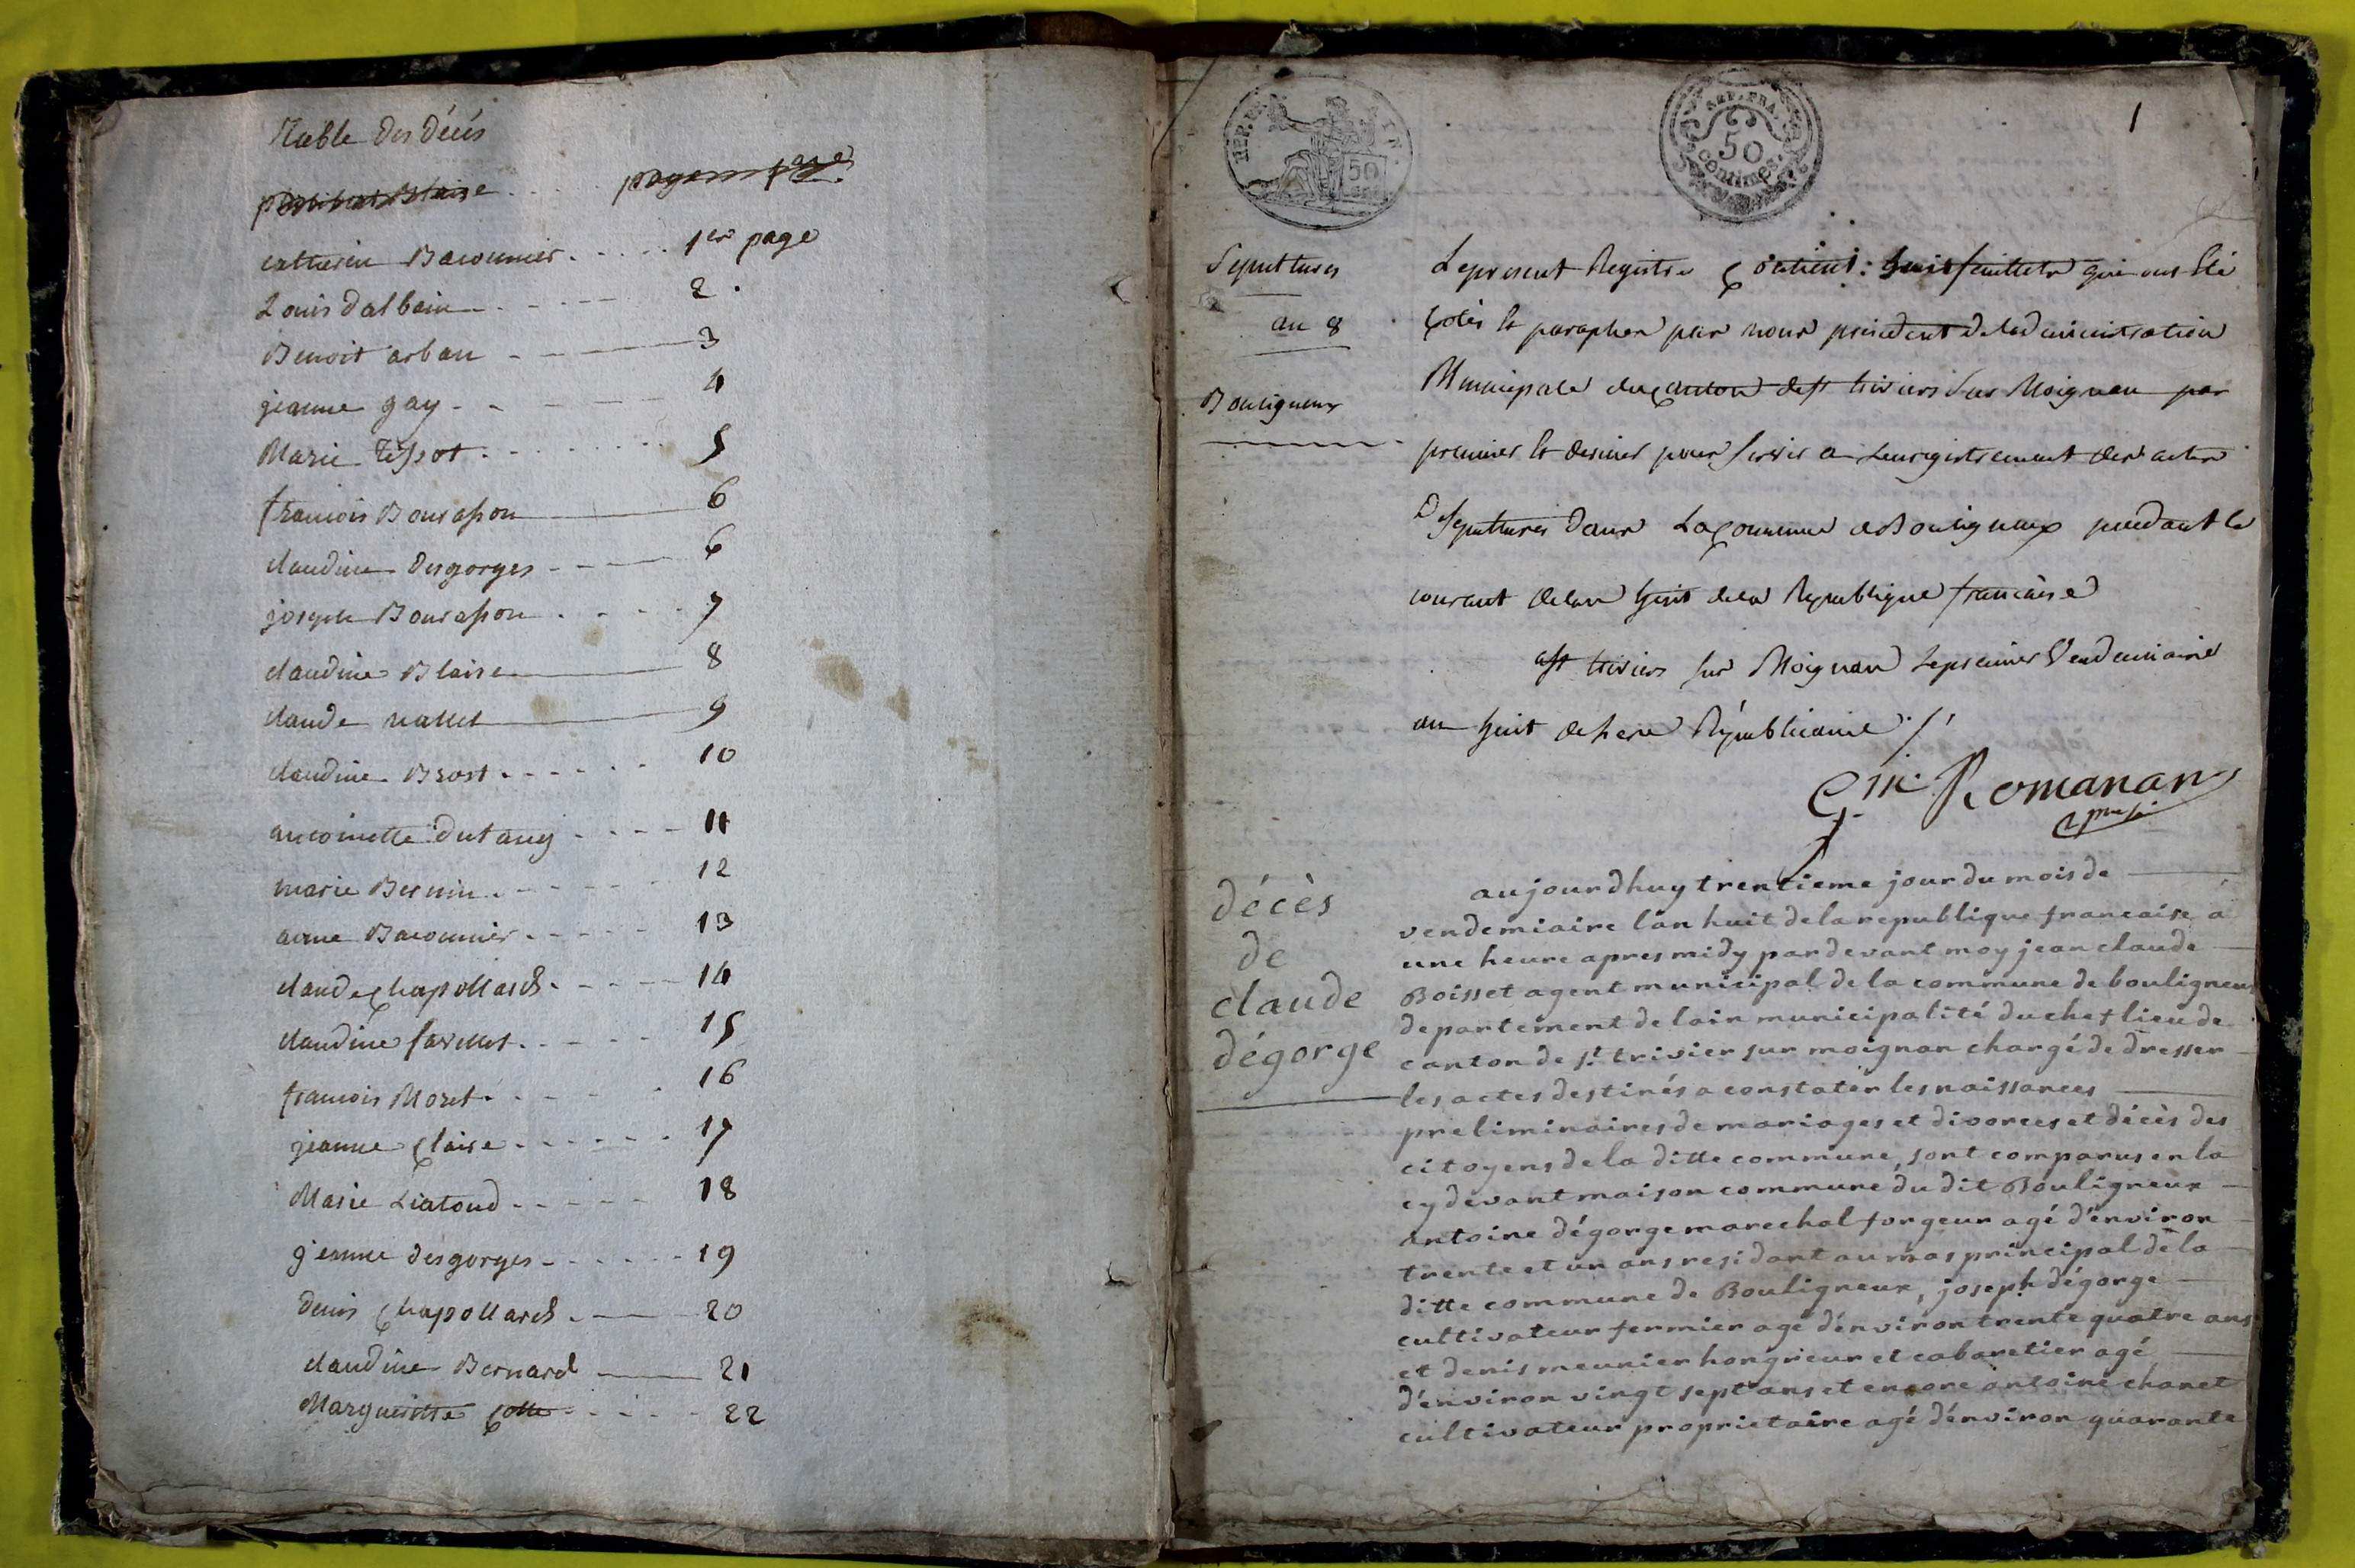 Table des décés
catherin Baconnier..... 1er page
Louis dalbain...... 2.
Benoit arban ....... 3
jeanne gay....... 4
Marie Tissot....... 5
francois Bourasson 6
claudine Desgorges ---- 6
joseph Bourasson..... 7
claudine Blaise 8
claude nallet 9
claudine Brost...... 10
antoinette dutang ---- 11
marie Bernin....... 12
anne Baconnier..... 13
claude Chapollard..... 14
claudine favillet..... 15
francois Moret...... 16
jeanne Claise...... 17
Marie Liatoud..... 18
jeanne desgorges..... 19
denis Chapollard. 20
claudine Bernard 21
Margueritte Collet..... 22
REP. FRA.
50
centimes.
1
50
Sepultures
an 8
Bouligneux
Le present Registre Contient huit feuillets qui ont Eté
Cotés et paraphes par nous president de Ladministration
Municipale du Canton de st trivier sur Moignan par
premier et dernier pour servir a Lenregistrement des actes
De sepultures dans La Commune de Bouligneux pendant le
courant de lan huit de la Republique francaise
a st trivier sur Moignan Le premier Vendemiaire
an huit de Lere Républicaine ./.
Romanans
décès
de
claude
dégorge
aujourdhuy trentieme jour du mois de
vendemiaire l'an huit de la republique francaise, a
une heure apres midy pardevant moy jean claude
Boisset agent municipal de la commune de bouligneux
departement de lain municipalité du chef lieu de
canton de st trivier sur moignan chargé de dresser
les actes destinés a constater les naissances
preliminaires de mariages et divorces et décès des
citoyens de la ditte commune, sont comparus en la
cydevant maison commune du dit Bouligneux
antoine dégorge marechal forgeur agé d'environ
trente et un ans residant au mas principal de la
ditte commune de Bouligneux, joseph dégorge
cultivateur fermier agé d'environ trente quatre ans
et denis meunier hongrieur et cabaretier agé
d'environ vingt sept ans et encore antoine chanet
cultivateur proprietaire agé d'environ quarante